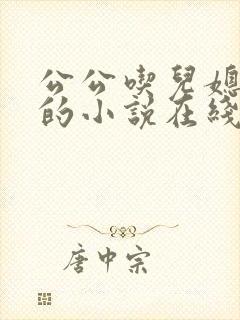 公公喫兒媳
的小說在綫
唐中宗